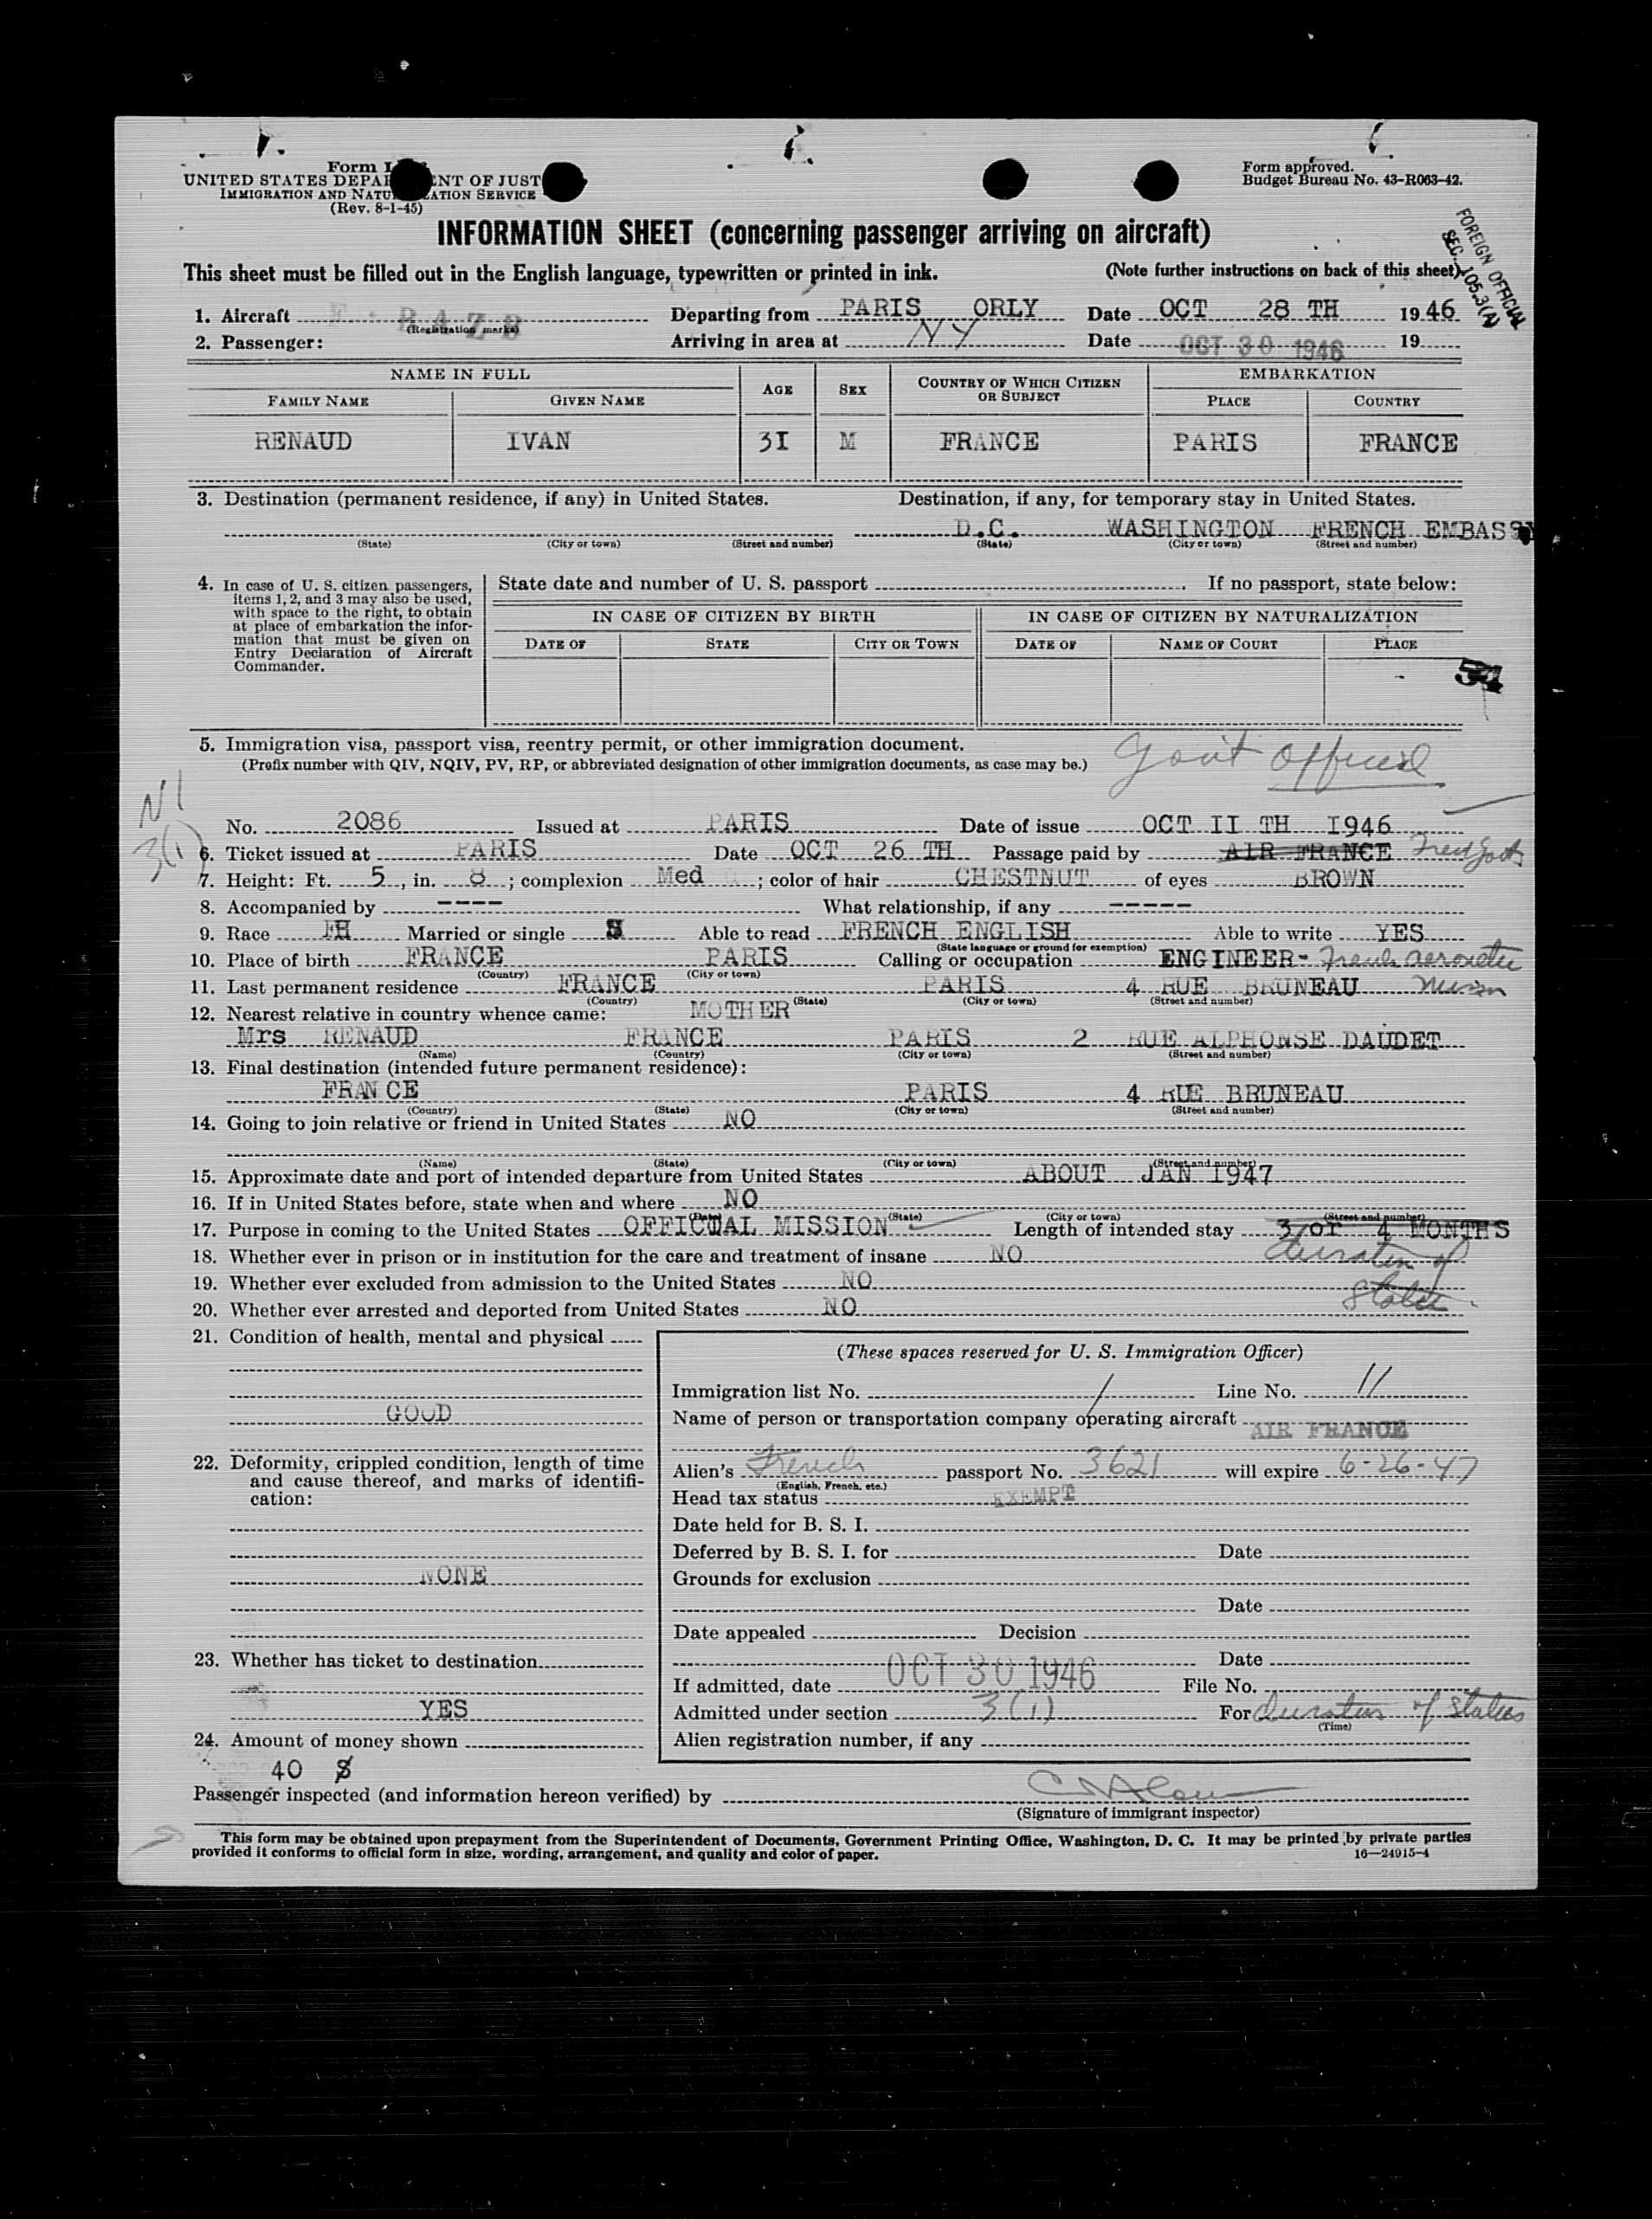 Form I
UNITED STATES DEPA NT OF JUST
IMMIGRATION AND NATU ATION SERVICE
(Rev. 8-1-45)
Form approved.
Budget Bureau No. 43-R063-42.
INFORMATION SHEET (concerning passenger arriving on aircraft)
FOREIGN OFFICIAL
SEC. 105.3(A)
This sheet must be filled out in the English language, typewritten or printed in ink. (Note further instructions on back of this sheet)
1. Aircraft Departing from PARIS ORLY Date OCT 28 TH 1946
(Registration marks)
2. Passenger: Arriving in area at NY Date OCT 30 1946 19
NAME IN FULL AGE SEX COUNTRY OF WHICH CITIZEN OR SUBJECT EMBARKATION
FAMILY NAME GIVEN NAME PLACE COUNTRY
RENAUD IVAN 3I M FRANCE PARIS FRANCE
3. Destination (permanent residence, if any) in United States. Destination, if any, for temporary stay in United States.
D.C. WASHINGTON FRENCH EMBASSY
(State) (City or town) (Street and number) (State) (City or town) (Street and number)
4. In case of U. S. citizen passengers, items 1, 2, and 3 may also be used, with space to the right, to obtain at place of embarkation the information that must be given on Entry Declaration of Aircraft Commander.
State date and number of U. S. passport . If no passport, state below:
IN CASE OF CITIZEN BY BIRTH IN CASE OF CITIZEN BY NATURALIZATION
DATE OF STATE CITY OR TOWN DATE OF NAME OF COURT PLACE
5. Immigration visa, passport visa, reentry permit, or other immigration document.
(Prefix number with QIV, NQIV, PV, RP, or abbreviated designation of other immigration documents, as case may be.)
Gov't Official
3(1)
No. 2086 Issued at PARIS Date of issue OCT II TH I946
6. Ticket issued at PARIS Date OCT 26 TH Passage paid by AIR FRANCE
7. Height: Ft. 5, in. 8; complexion Med; color of hair CHESTNUT of eyes BROWN
8. Accompanied by ---- What relationship, if any -----
9. Race FH Married or single S Able to read FRENCH ENGLISH Able to write YES
(State language or ground for exemption)
10. Place of birth FRANCE PARIS Calling or occupation ENGINEER-
(Country) (City or town)
11. Last permanent residence FRANCE PARIS 4 RUE BRUNEAU
(Country) (State) (City or town) (Street and number)
12. Nearest relative in country whence came: MOTHER
Mrs RENAUD FRANCE PARIS 2 RUE ALPHONSE DAUDET
(Name) (Country) (City or town) (Street and number)
13. Final destination (intended future permanent residence):
FRAN CE PARIS 4 RUE BRUNEAU
(Country) (State) (City or town) (Street and number)
14. Going to join relative or friend in United States NO
(Name) (State) (City or town) (Street and number)
15. Approximate date and port of intended departure from United States ABOUT JAN 1947
16. If in United States before, state when and where NO
(Date) (State) (City or town) (Street and number)
17. Purpose in coming to the United States OFFICIAL MISSION Length of intended stay 3 or 4 MONTHS
duration of
status
18. Whether ever in prison or in institution for the care and treatment of insane NO
19. Whether ever excluded from admission to the United States NO
20. Whether ever arrested and deported from United States NO
21. Condition of health, mental and physical
GOOD
22. Deformity, crippled condition, length of time and cause thereof, and marks of identification:
NONE
23. Whether has ticket to destination
YES
24. Amount of money shown
40 $
(These spaces reserved for U. S. Immigration Officer)
Immigration list No. / Line No. 11
Name of person or transportation company operating aircraft AIR FRANCE
Alien's French passport No. 3621 will expire 6-26-47
(English, French, etc.)
Head tax status EXEMPT
Date held for B. S. I.
Deferred by B. S. I. for Date
Grounds for exclusion
Date
Date appealed Decision
Date
If admitted, date OCT 30 1946 File No.
Admitted under section 3(1) For duration of status
(Time)
Alien registration number, if any
Passenger inspected (and information hereon verified) by
(Signature of immigrant inspector)
This form may be obtained upon prepayment from the Superintendent of Documents, Government Printing Office, Washington, D. C. It may be printed by private parties
provided it conforms to official form in size, wording, arrangement, and quality and color of paper. 16—24915-4